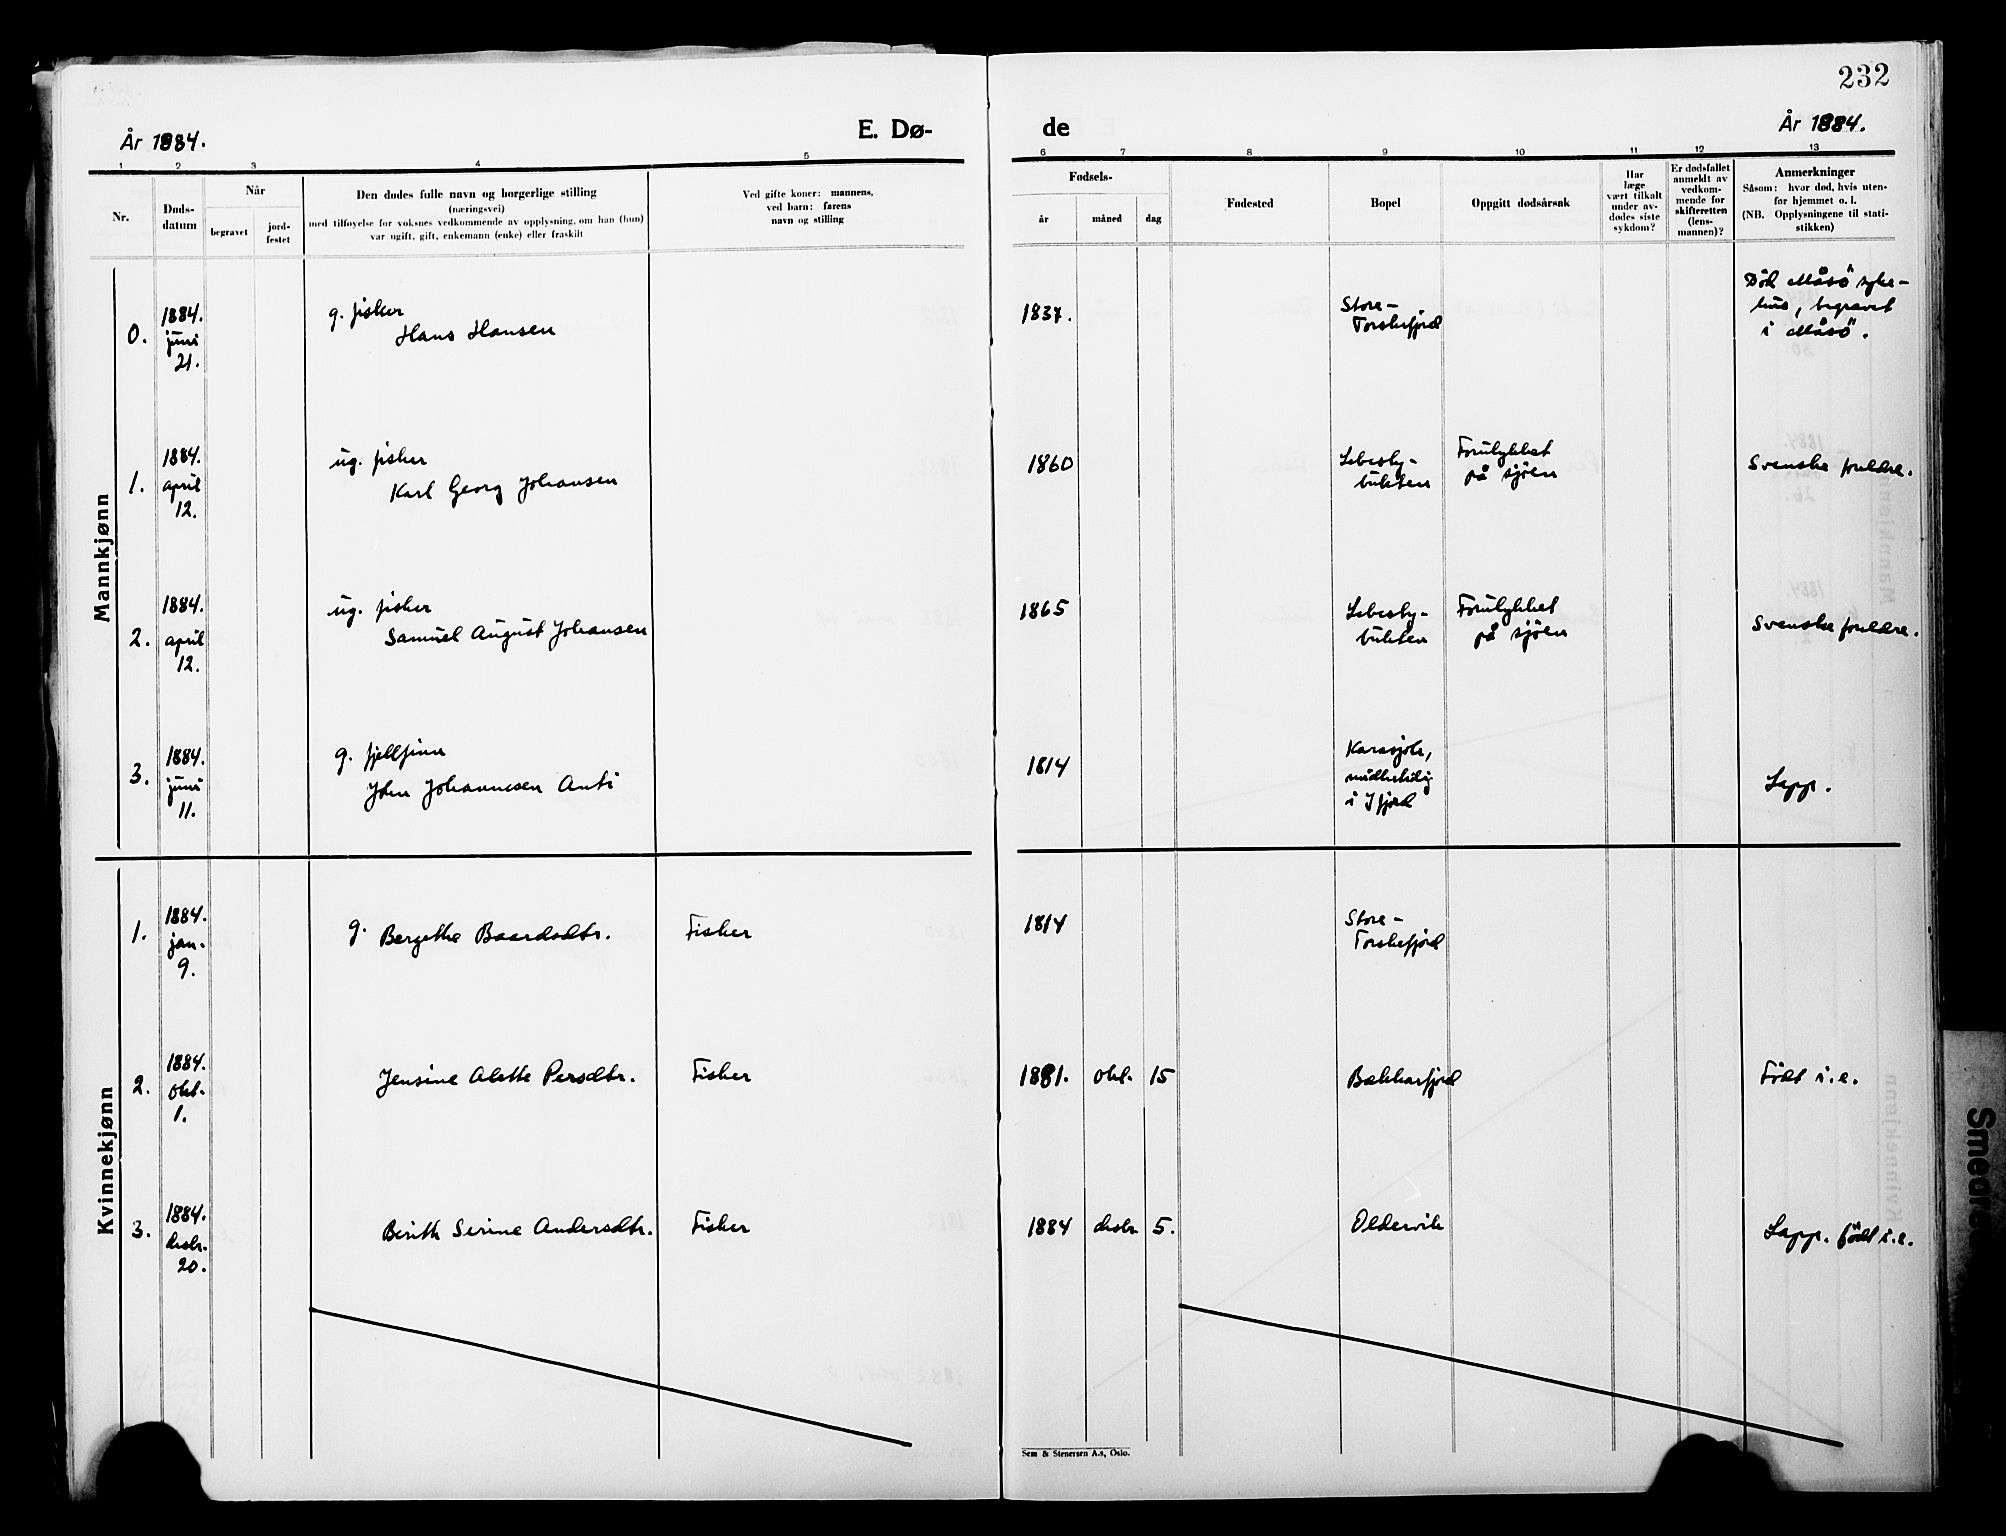 232
År 1884.
E. Dø-
de
År 1884.
1 2 3 4 5
6 7 8 9 10 11 12 13
Nr.
Døds-
datum
Når
begravet
jord-
festet
Den dødes fulle navn og borgerlige stilling
(næringsvei)
med tilføyelse for voksnes vedkommende av opplysning, om han (hun)
var ugift, gift, enkemann (enke) eller fraskilt
Ved gifte koner: mannens,
ved barn: farens
navn og stilling
Fødsels-
år
måned
dag
Fødested
Bopel
Oppgitt dødsårsak
Har
læge
vært tilkalt
under av-
dødes siste
sykdom?
Er dødsfallet
anmeldt av
vedkom-
mende for
skifteretten
(lens-
mannen)?
Anmerkninger
Såsom: hvor død, hvis uten-
for hjemmet o. l.
(NB. Opplysningene til stati-
stikken)
Mannkjønn
0.
1884.
juni
21.
g. fisker
Hans Hansen
1837.
Store-
Torskefjord
Död Måsö syke-
hus, begravet
i Måsö.
1.
1884.
april
12.
ug. fisker
Karl Georg Johansen
1860
Lebesby-
bukten
Forulykket
på sjöen
Svenske foreldre.
2.
1884.
april
12.
ug. fisker
Samuel August Johansen
1865
Lebesby-
bukten
Forulykket
på sjöen
Svenske foreldre.
3.
1884.
juni
11.
g. fjellfinn
John Johannesen Anti
1814
Karasjok,
midlertidig
i Ifjord
Lapp.
Kvinnekjønn
1.
1884.
jan.
9.
g. Bergethe Baardsdtr.
Fisker
1814
Store-
Torskefjord
2.
1884.
okt.
1.
Jensine Alette Persdtr.
Fisker
1881. okt. 15
Bekkarfjord
Född i.e.
3.
1884.
desbr.
20.
Berith Serine Andersdtr.
Fisker
1884 desbr 5.
Oldervik
Lapp. född i.e.
Sem & Stenersen A.s, Oslo.